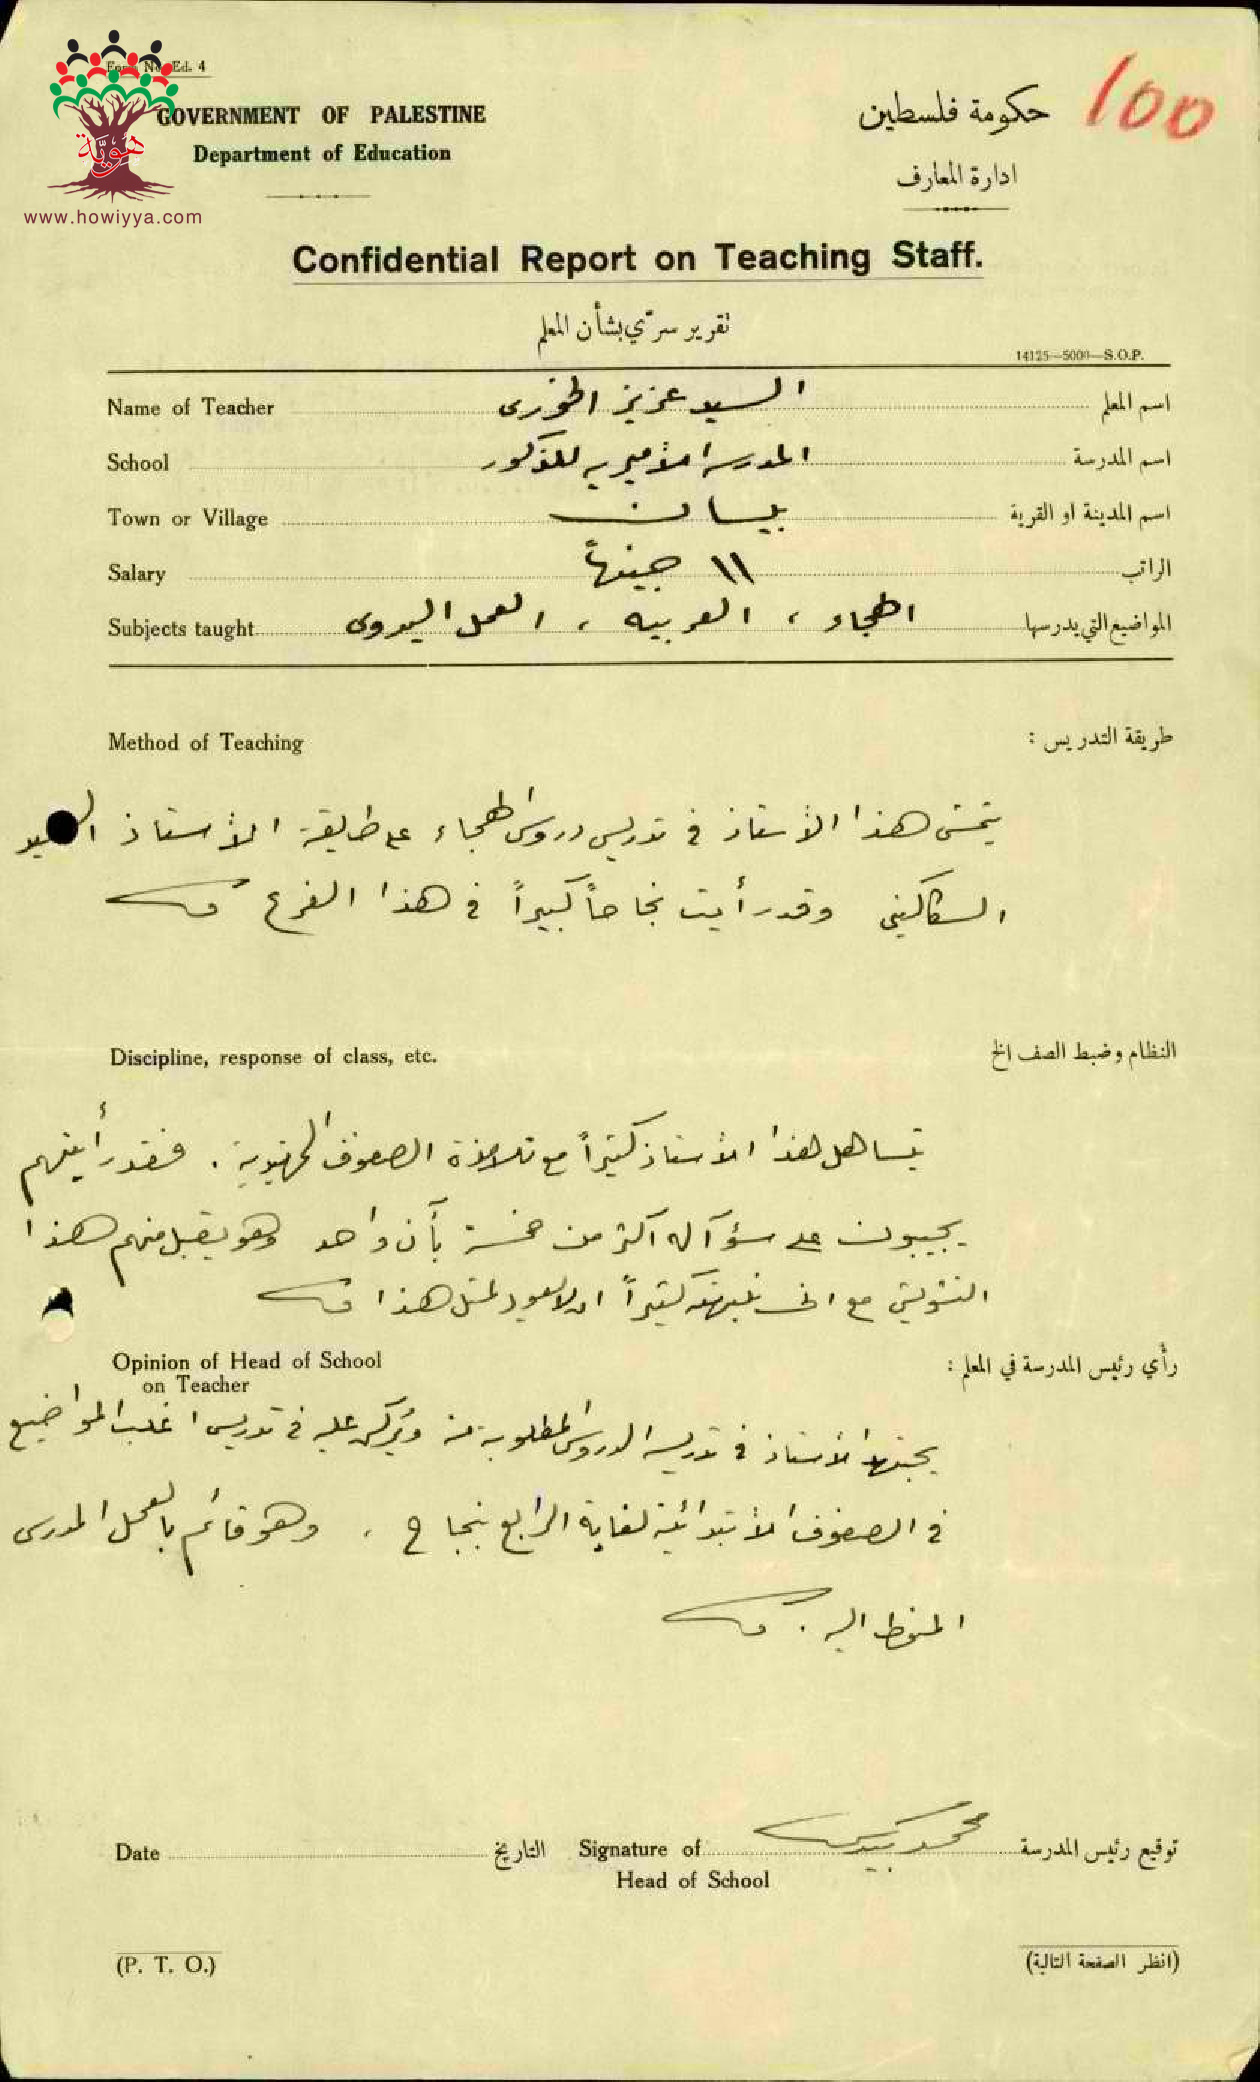 Form No. Ed. 4
100
GOVERNMENT OF PALESTINE
حكومة فلسطين
Department of Education
ادارة المعارف
هوية
www.howiyya.com
Confidential Report on Teaching Staff.
تقرير سري بشأن المعلم
14125—5000—S.O.P.
Name of Teacher السيد عزيز الخوري اسم المعلم
School المدرسة الأميرية للذكور اسم المدرسة
Town or Village بيسان اسم المدينة او القرية
Salary ١١ جنيهاً الراتب
Subjects taught الهجاء ، العربيه ، العمل اليدوى المواضيع التي يدرسها
Method of Teaching طريقة التدريس :
يتمشى هذا الأستاذ في تدريس دروس الهجاء على طريقة الأستاذ السيد
السكاكيني وقد رأيت نجاحاً كبيراً في هذا الفرع
Discipline, response of class, etc. النظام وضبط الصف الخ
يتساهل هذا الأستاذ كثيراً مع تلامذة الصفوف . فقد رأيتهم
يجيبون على سؤآله اكثر من خمسة بآن واحد وهو يقبل منهم هذا
التشويش مع انى نبهته كثيراً ان لا يعود لمثل هذا
Opinion of Head of School رأي رئيس المدرسة في المعلم :
on Teacher
يجتهد الأستاذ في تدريس الدروس المطلوبة منه عليه في تدريس اغلب المواضيع
في الصفوف الأبتدائية لغاية الرابع بنجاح ، وهو قائم بالعمل المدرسى
المنوط اليه .
Date التاريخ Signature of محمد توقيع رئيس المدرسة
Head of School
(P. T. O.) (انظر الصفحة التالية)